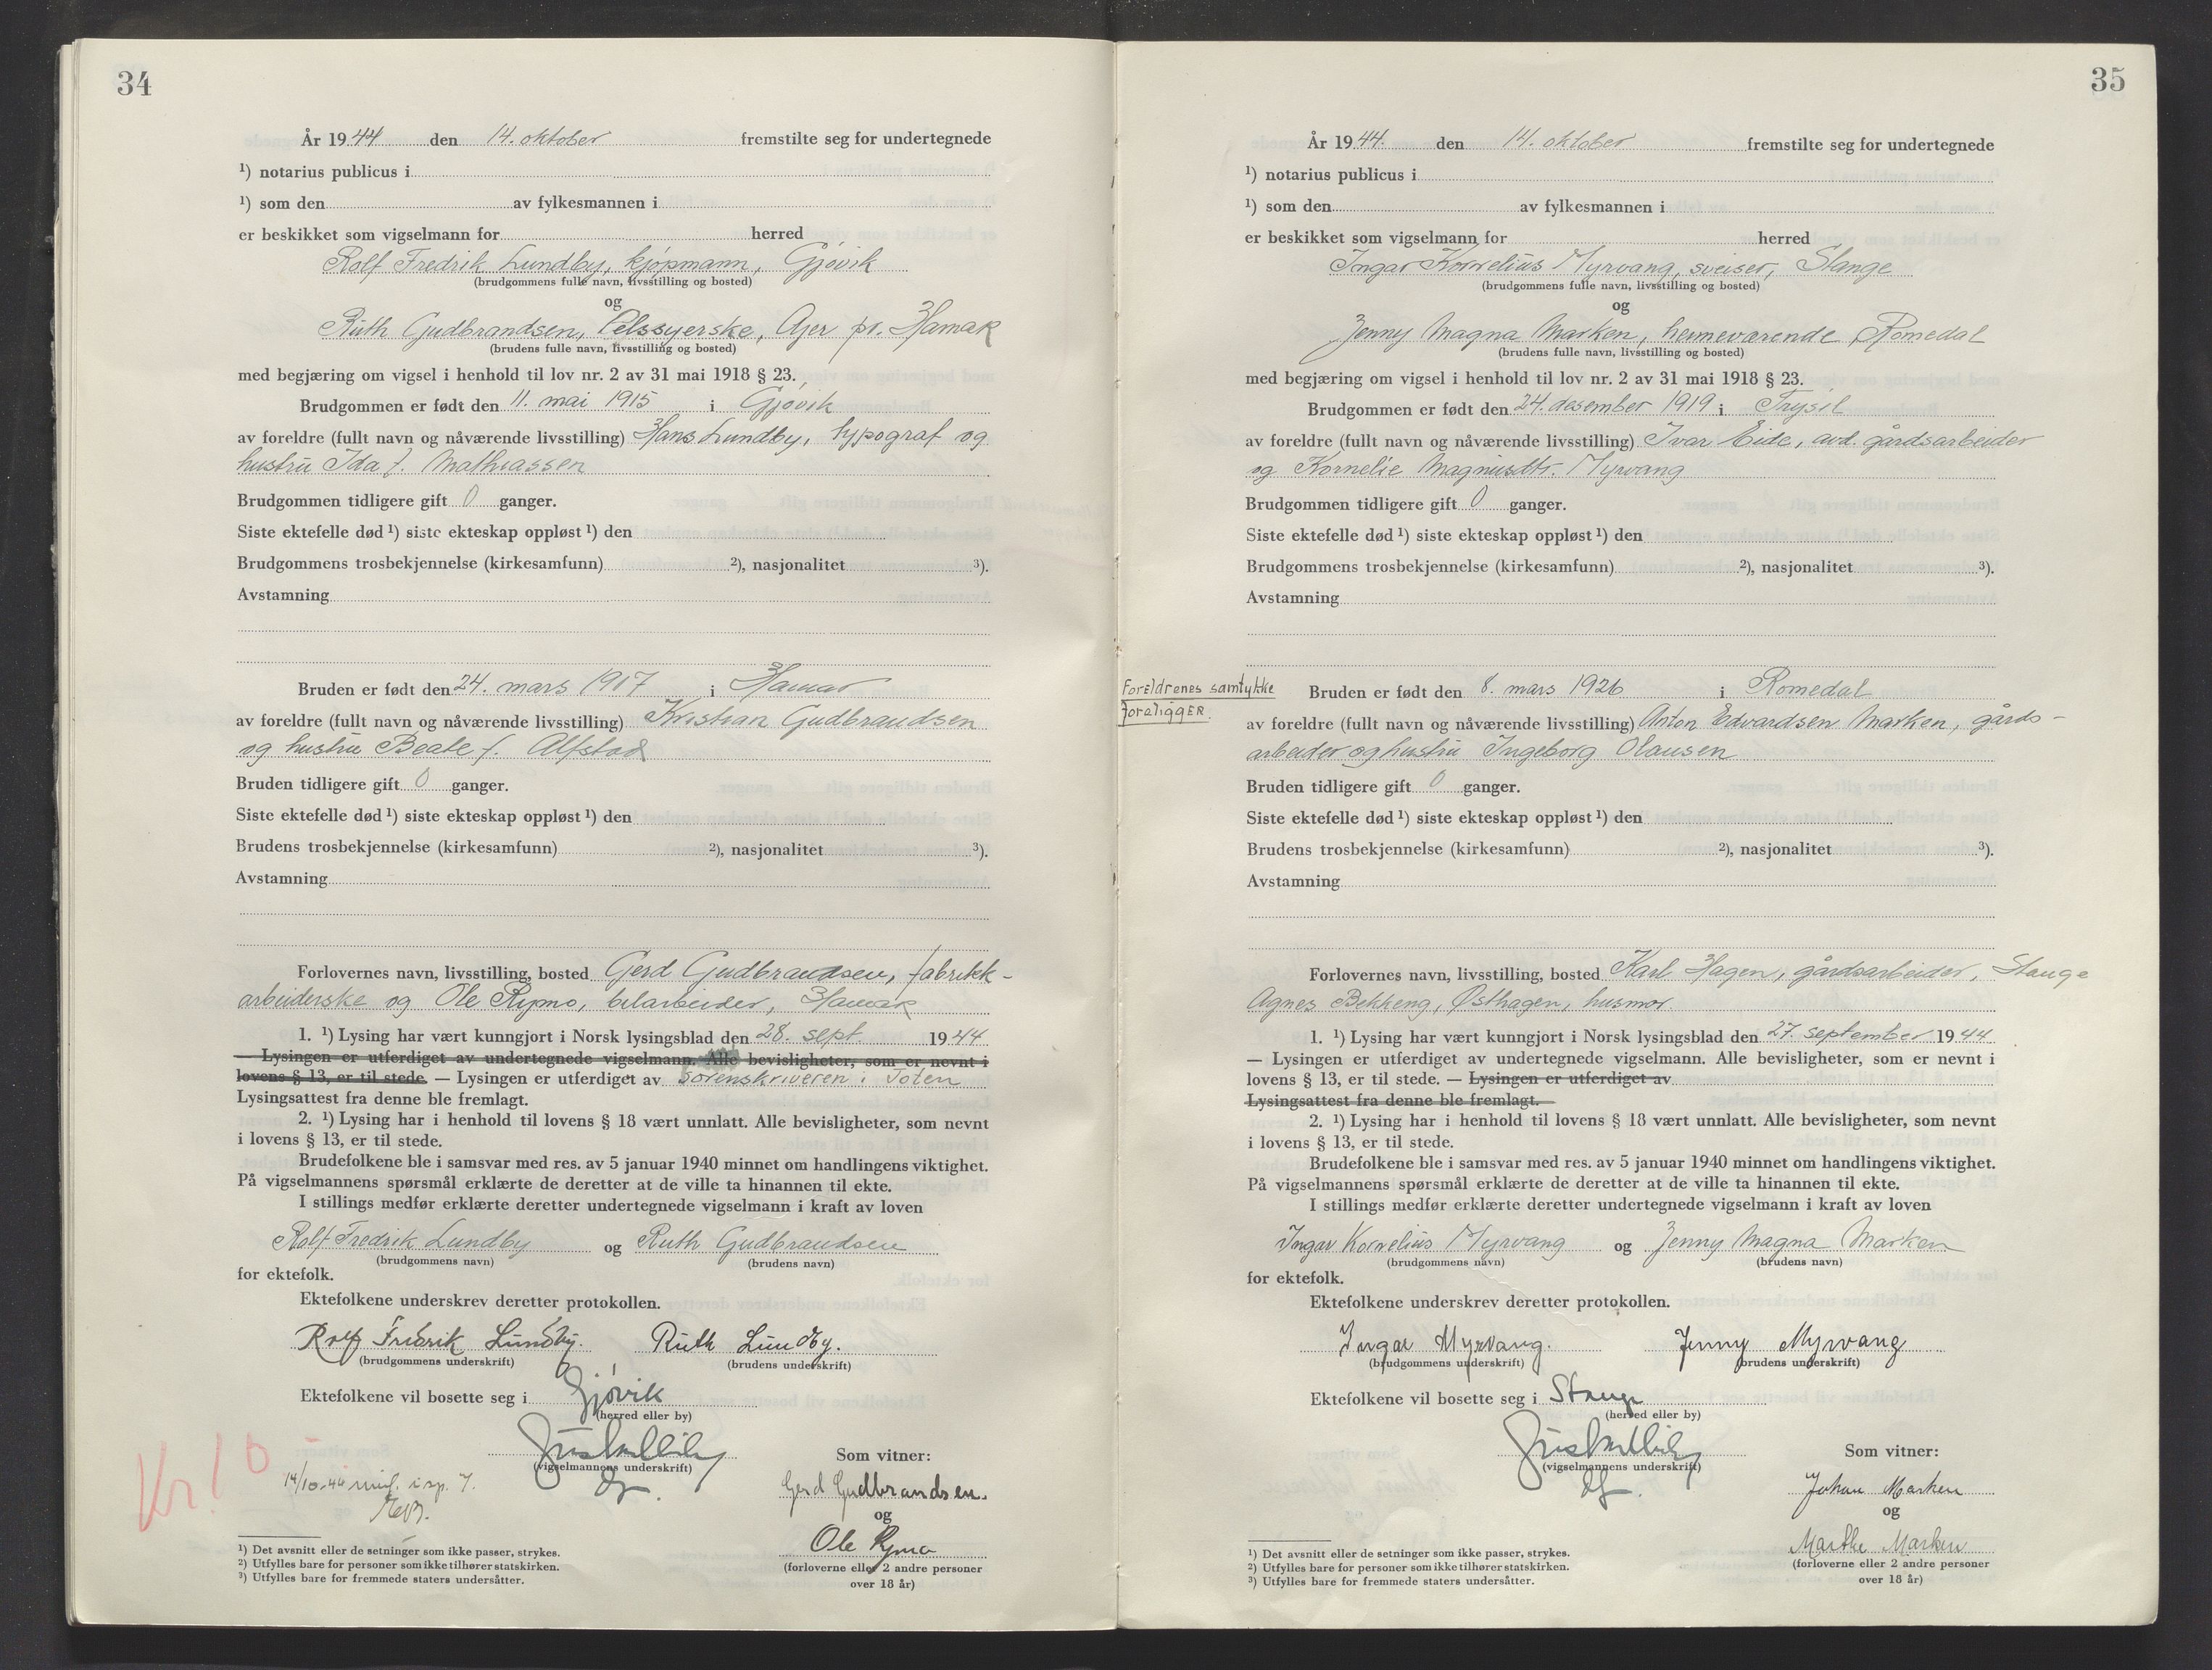 34
År 1944 den 14. oktober fremstilte seg for undertegnede
¹) notarius publicus i
¹) som den av fylkesmannen i
er beskikket som vigselmann for herred
Rolf Fredrik Lundby, kjøpmann, Gjøvik
(brudgommens fulle navn, livsstilling og bosted)
og
Ruth Gudbrandsen, Pelssyerske, Ajer pr. Hamar
(brudens fulle navn, livsstilling og bosted)
med begjæring om vigsel i henhold til lov nr. 2 av 31 mai 1918 § 23.
Brudgommen er født den 11. mai 1915 i Gjøvik
av foreldre (fullt navn og nåværende livsstilling) Hans Lundby, typograf og
hustru Ida f. Mathiassen
Brudgommen tidligere gift 0 ganger.
Siste ektefelle død ¹) siste ekteskap oppløst ¹) den
Brudgommens trosbekjennelse (kirkesamfunn) ²), nasjonalitet ³).
Avstamning
Bruden er født den 24. mars 1917 i Hamar
av foreldre (fullt navn og nåværende livsstilling) Kristian Gudbrandsen
og hustru Beate f. Alfstad
Bruden tidligere gift 0 ganger.
Siste ektefelle død ¹) siste ekteskap oppløst ¹) den
Brudens trosbekjennelse (kirkesamfunn) ²), nasjonalitet ³).
Avstamning
Forlovernes navn, livsstilling, bosted Gerd Gudbrandsen, fabrikk-
arbeiderske og Ole Rymo, bilarbeider, Hamar
1. ¹) Lysing har vært kunngjort i Norsk lysingsblad den 28. sept. 1944
— Lysingen er utferdiget av undertegnede vigselmann. Alle bevisligheter, som er nevnt i
lovens § 13, er til stede. — Lysingen er utferdiget av sorenskriveren i Toten
Lysingsattest fra denne ble fremlagt.
2. ¹) Lysing har i henhold til lovens § 18 vært unnlatt. Alle bevisligheter, som nevnt
i lovens § 13, er til stede.
Brudefolkene ble i samsvar med res. av 5 januar 1940 minnet om handlingens viktighet.
På vigselmannens spørsmål erklærte de deretter at de ville ta hinannen til ekte.
I stillings medfør erklærte deretter undertegnede vigselmann i kraft av loven
Rolf Fredrik Lundby og Ruth Gudbrandsen
(brudgommens navn) (brudens navn)
for ektefolk.
Ektefolkene underskrev deretter protokollen.
Rolf Fredrik Lundby. Ruth Lundby.
(brudgommens underskrift) (brudens underskrift)
Ektefolkene vil bosette seg i Gjøvik
(herred eller by)
(vigselmannens underskrift)
Som vitner:
Gerd Gudbrandsen.
og
Ole Rymo
(forloverne eller 2 andre personer
over 18 år)
Kr. 10
14/10-44
¹) Det avsnitt eller de setninger som ikke passer, strykes.
²) Utfylles bare for personer som ikke tilhører statskirken.
³) Utfylles bare for fremmede staters undersåtter.
35
År 1944. den 14. oktober fremstilte seg for undertegnede
¹) notarius publicus i
¹) som den av fylkesmannen i
er beskikket som vigselmann for herred
Ingar Kornelius Myrvang, sveiser, Stange
(brudgommens fulle navn, livsstilling og bosted)
og
Jenny Magna Marken, hjemmeværende Romedal
(brudens fulle navn, livsstilling og bosted)
med begjæring om vigsel i henhold til lov nr. 2 av 31 mai 1918 § 23.
Brudgommen er født den 24. desember 1919 i Trysil
av foreldre (fullt navn og nåværende livsstilling) Ivar Eide, avd. gårdsarbeider
og Kornelie Magnusdtr. Myrvang
Brudgommen tidligere gift 0 ganger.
Siste ektefelle død ¹) siste ekteskap oppløst ¹) den
Brudgommens trosbekjennelse (kirkesamfunn) ²), nasjonalitet ³).
Avstamning
Foreldrenes samtykke
foreligger.
Bruden er født den 8. mars 1926 i Romedal
av foreldre (fullt navn og nåværende livsstilling) Anton Edvardsen Marken, gårds-
arbeider og hustru Ingeborg Olausen
Bruden tidligere gift 0 ganger.
Siste ektefelle død ¹) siste ekteskap oppløst ¹) den
Brudens trosbekjennelse (kirkesamfunn) ²), nasjonalitet ³).
Avstamning
Forlovernes navn, livsstilling, bosted Karl Hagen, gårdsarbeider, Stange
Agnes Bekkeng, Østhagen, husmor.
1. ¹) Lysing har vært kunngjort i Norsk lysingsblad den 27. september 1944
— Lysingen er utferdiget av undertegnede vigselmann. Alle bevisligheter, som er nevnt i
lovens § 13, er til stede. — Lysingen er utferdiget av
Lysingsattest fra denne ble fremlagt.
2. ¹) Lysing har i henhold til lovens § 18 vært unnlatt. Alle bevisligheter, som nevnt
i lovens § 13, er til stede.
Brudefolkene ble i samsvar med res. av 5 januar 1940 minnet om handlingens viktighet.
På vigselmannens spørsmål erklærte de deretter at de ville ta hinannen til ekte.
I stillings medfør erklærte deretter undertegnede vigselmann i kraft av loven
Ingar Kornelius Myrvang og Jenny Magna Marken
(brudgommens navn) (brudens navn)
for ektefolk.
Ektefolkene underskrev deretter protokollen.
Ingar Myrvang. Jenny Myrvang
(brudgommens underskrift) (brudens underskrift)
Ektefolkene vil bosette seg i Stange
(herred eller by)
(vigselmannens underskrift)
Som vitner:
Johan Marken
og
Marthe Marken
(forloverne eller 2 andre personer
over 18 år)
¹) Det avsnitt eller de setninger som ikke passer, strykes.
²) Utfylles bare for personer som ikke tilhører statskirken.
³) Utfylles bare for fremmede staters undersåtter.